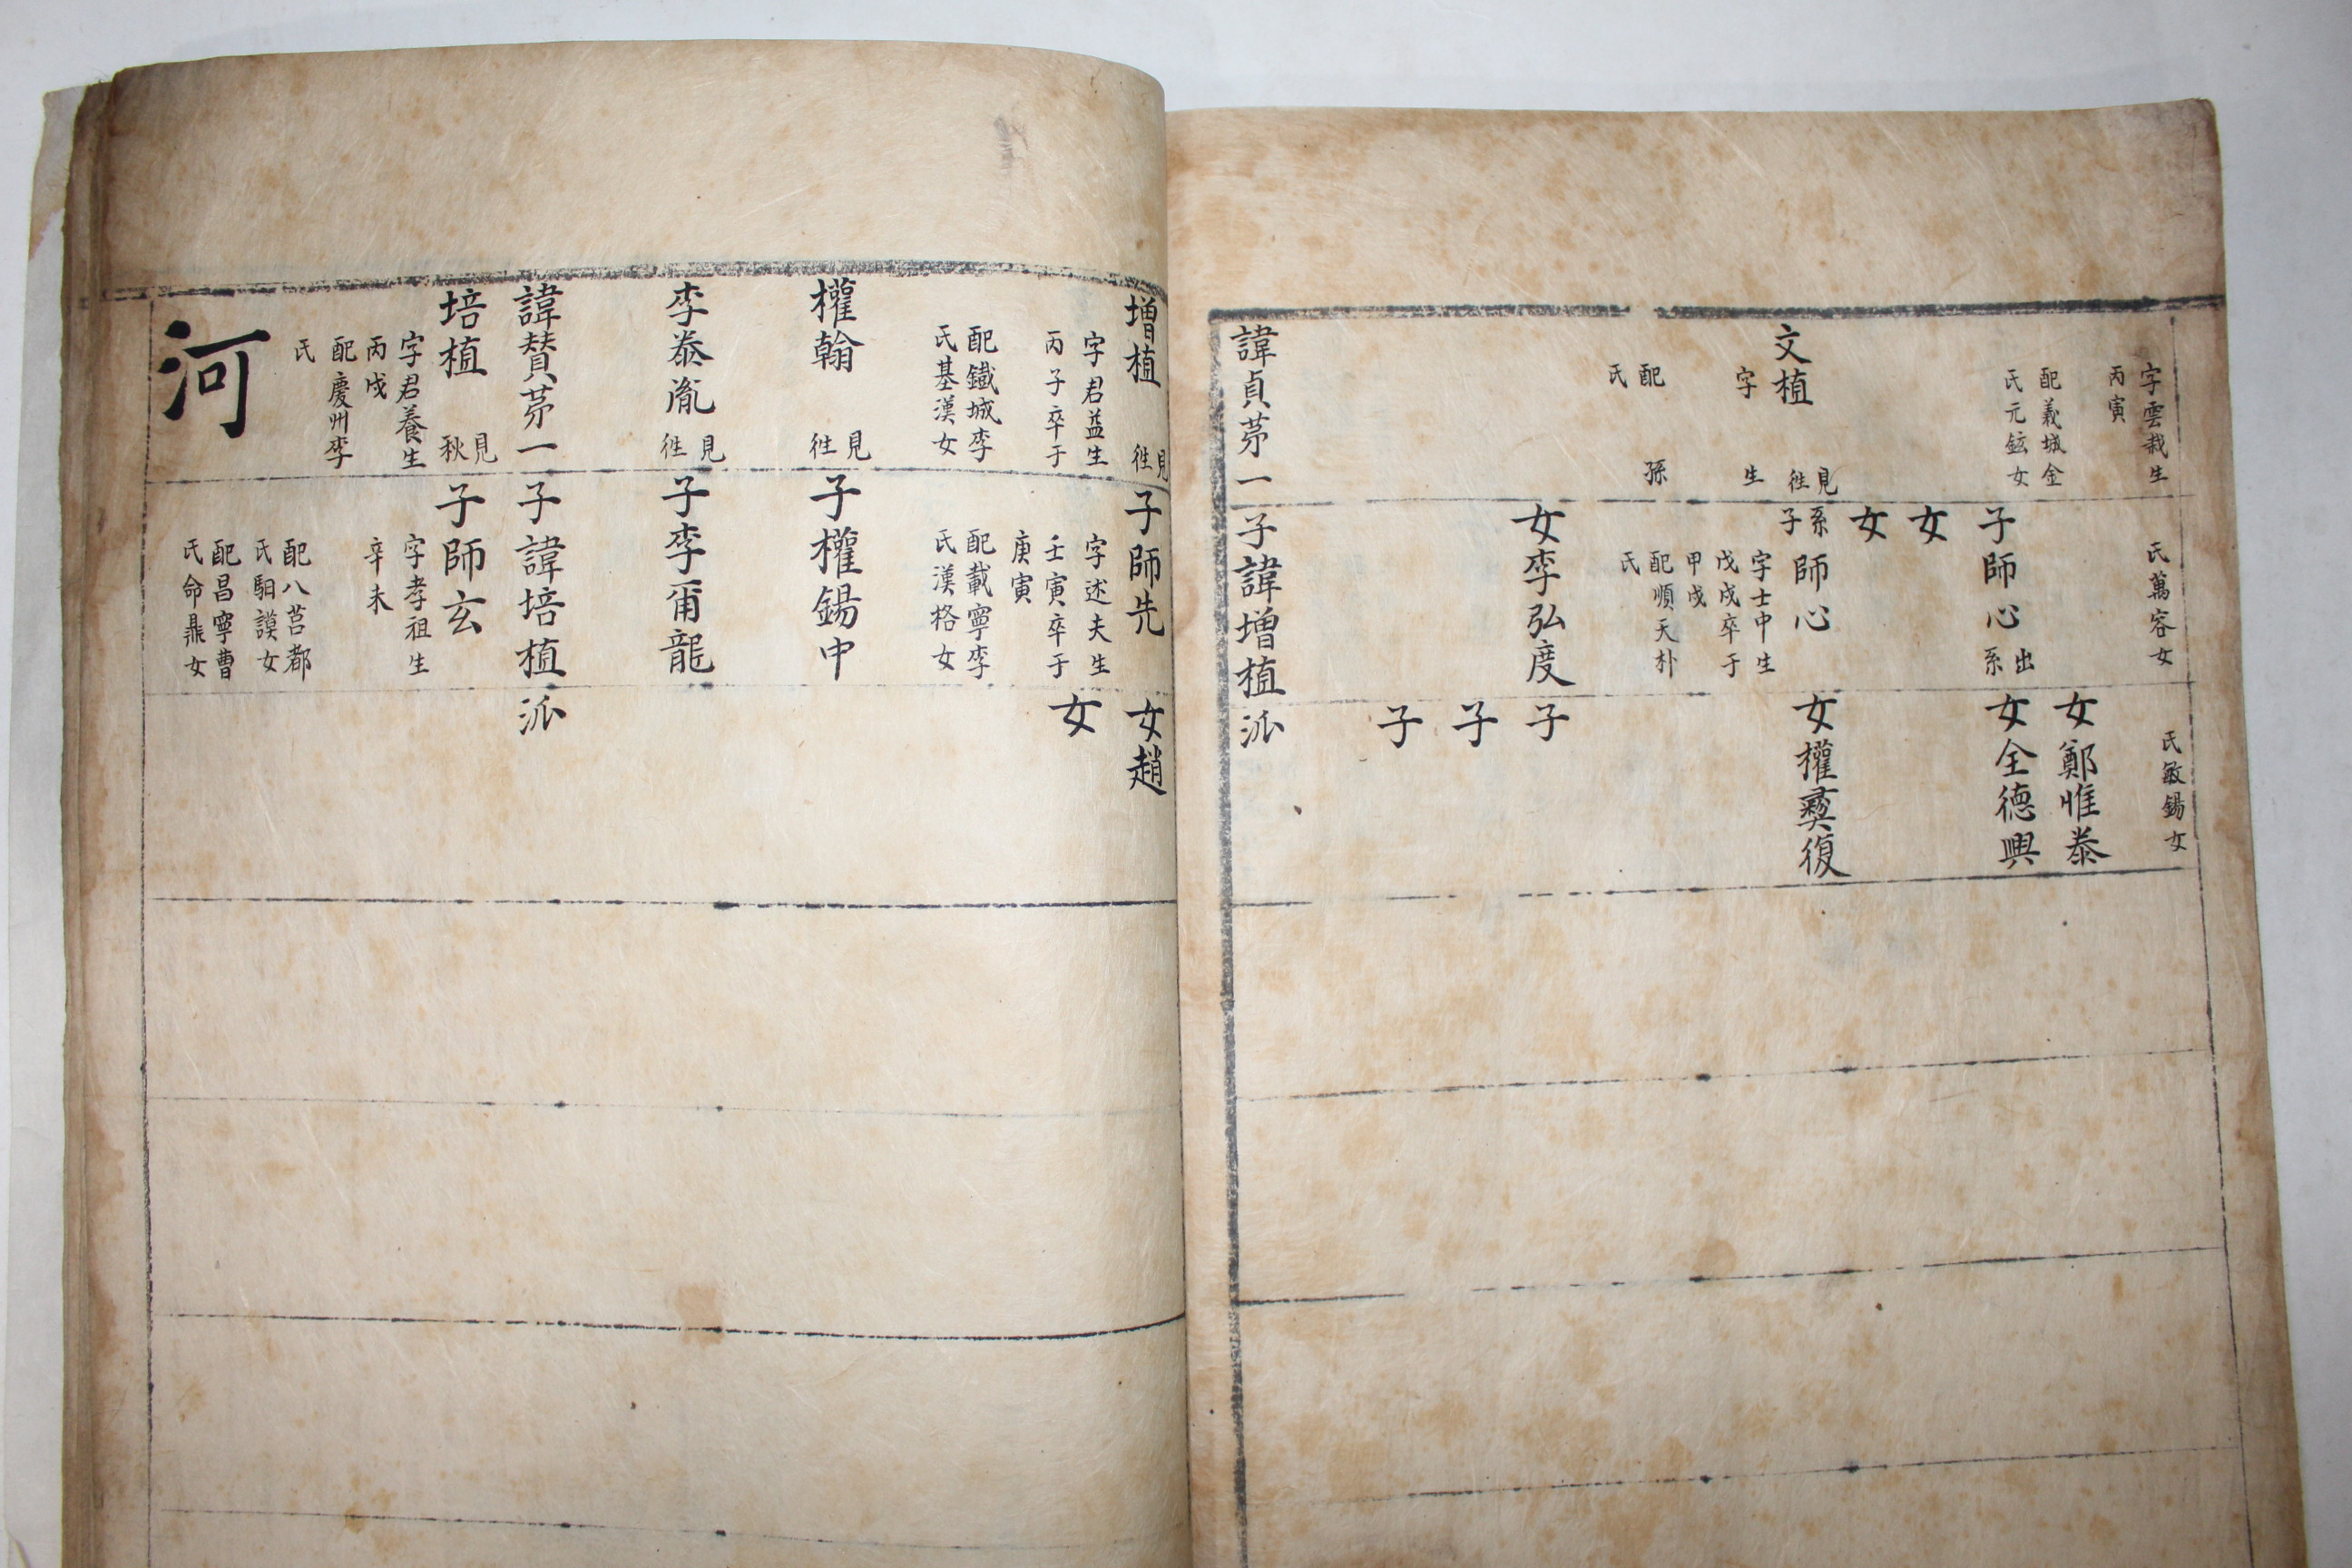 字雲栽生
丙寅
配義城金
氏元鉉女
文植
見
徃
字 生
配 孫
氏
氏萬容女
子師心
出
系
女
女
系
子
師心
字士中生
戊戌卒于
甲戌
配順天朴
氏
女李弘度
氏敏錫女
女鄭惟泰
女全德興
女權彛復
子
子
子
諱貞苐一子諱增植派
增植
見
徃
字君益生
丙子卒于
配鐵城李
氏基漢女
權翰
見
徃
李泰胤
見
徃
子師先
字述夫生
壬寅卒于
庚寅
配載寧李
氏漢格女
子權錫中
子李甯龍
女趙
女
諱賛苐一子諱培植派
培植
見
秋
字君養生
丙戌
配慶州李
氏
子師玄
字孝祖生
辛未
配八莒都
氏馹謨女
配昌寧曹
氏命鼎女
河